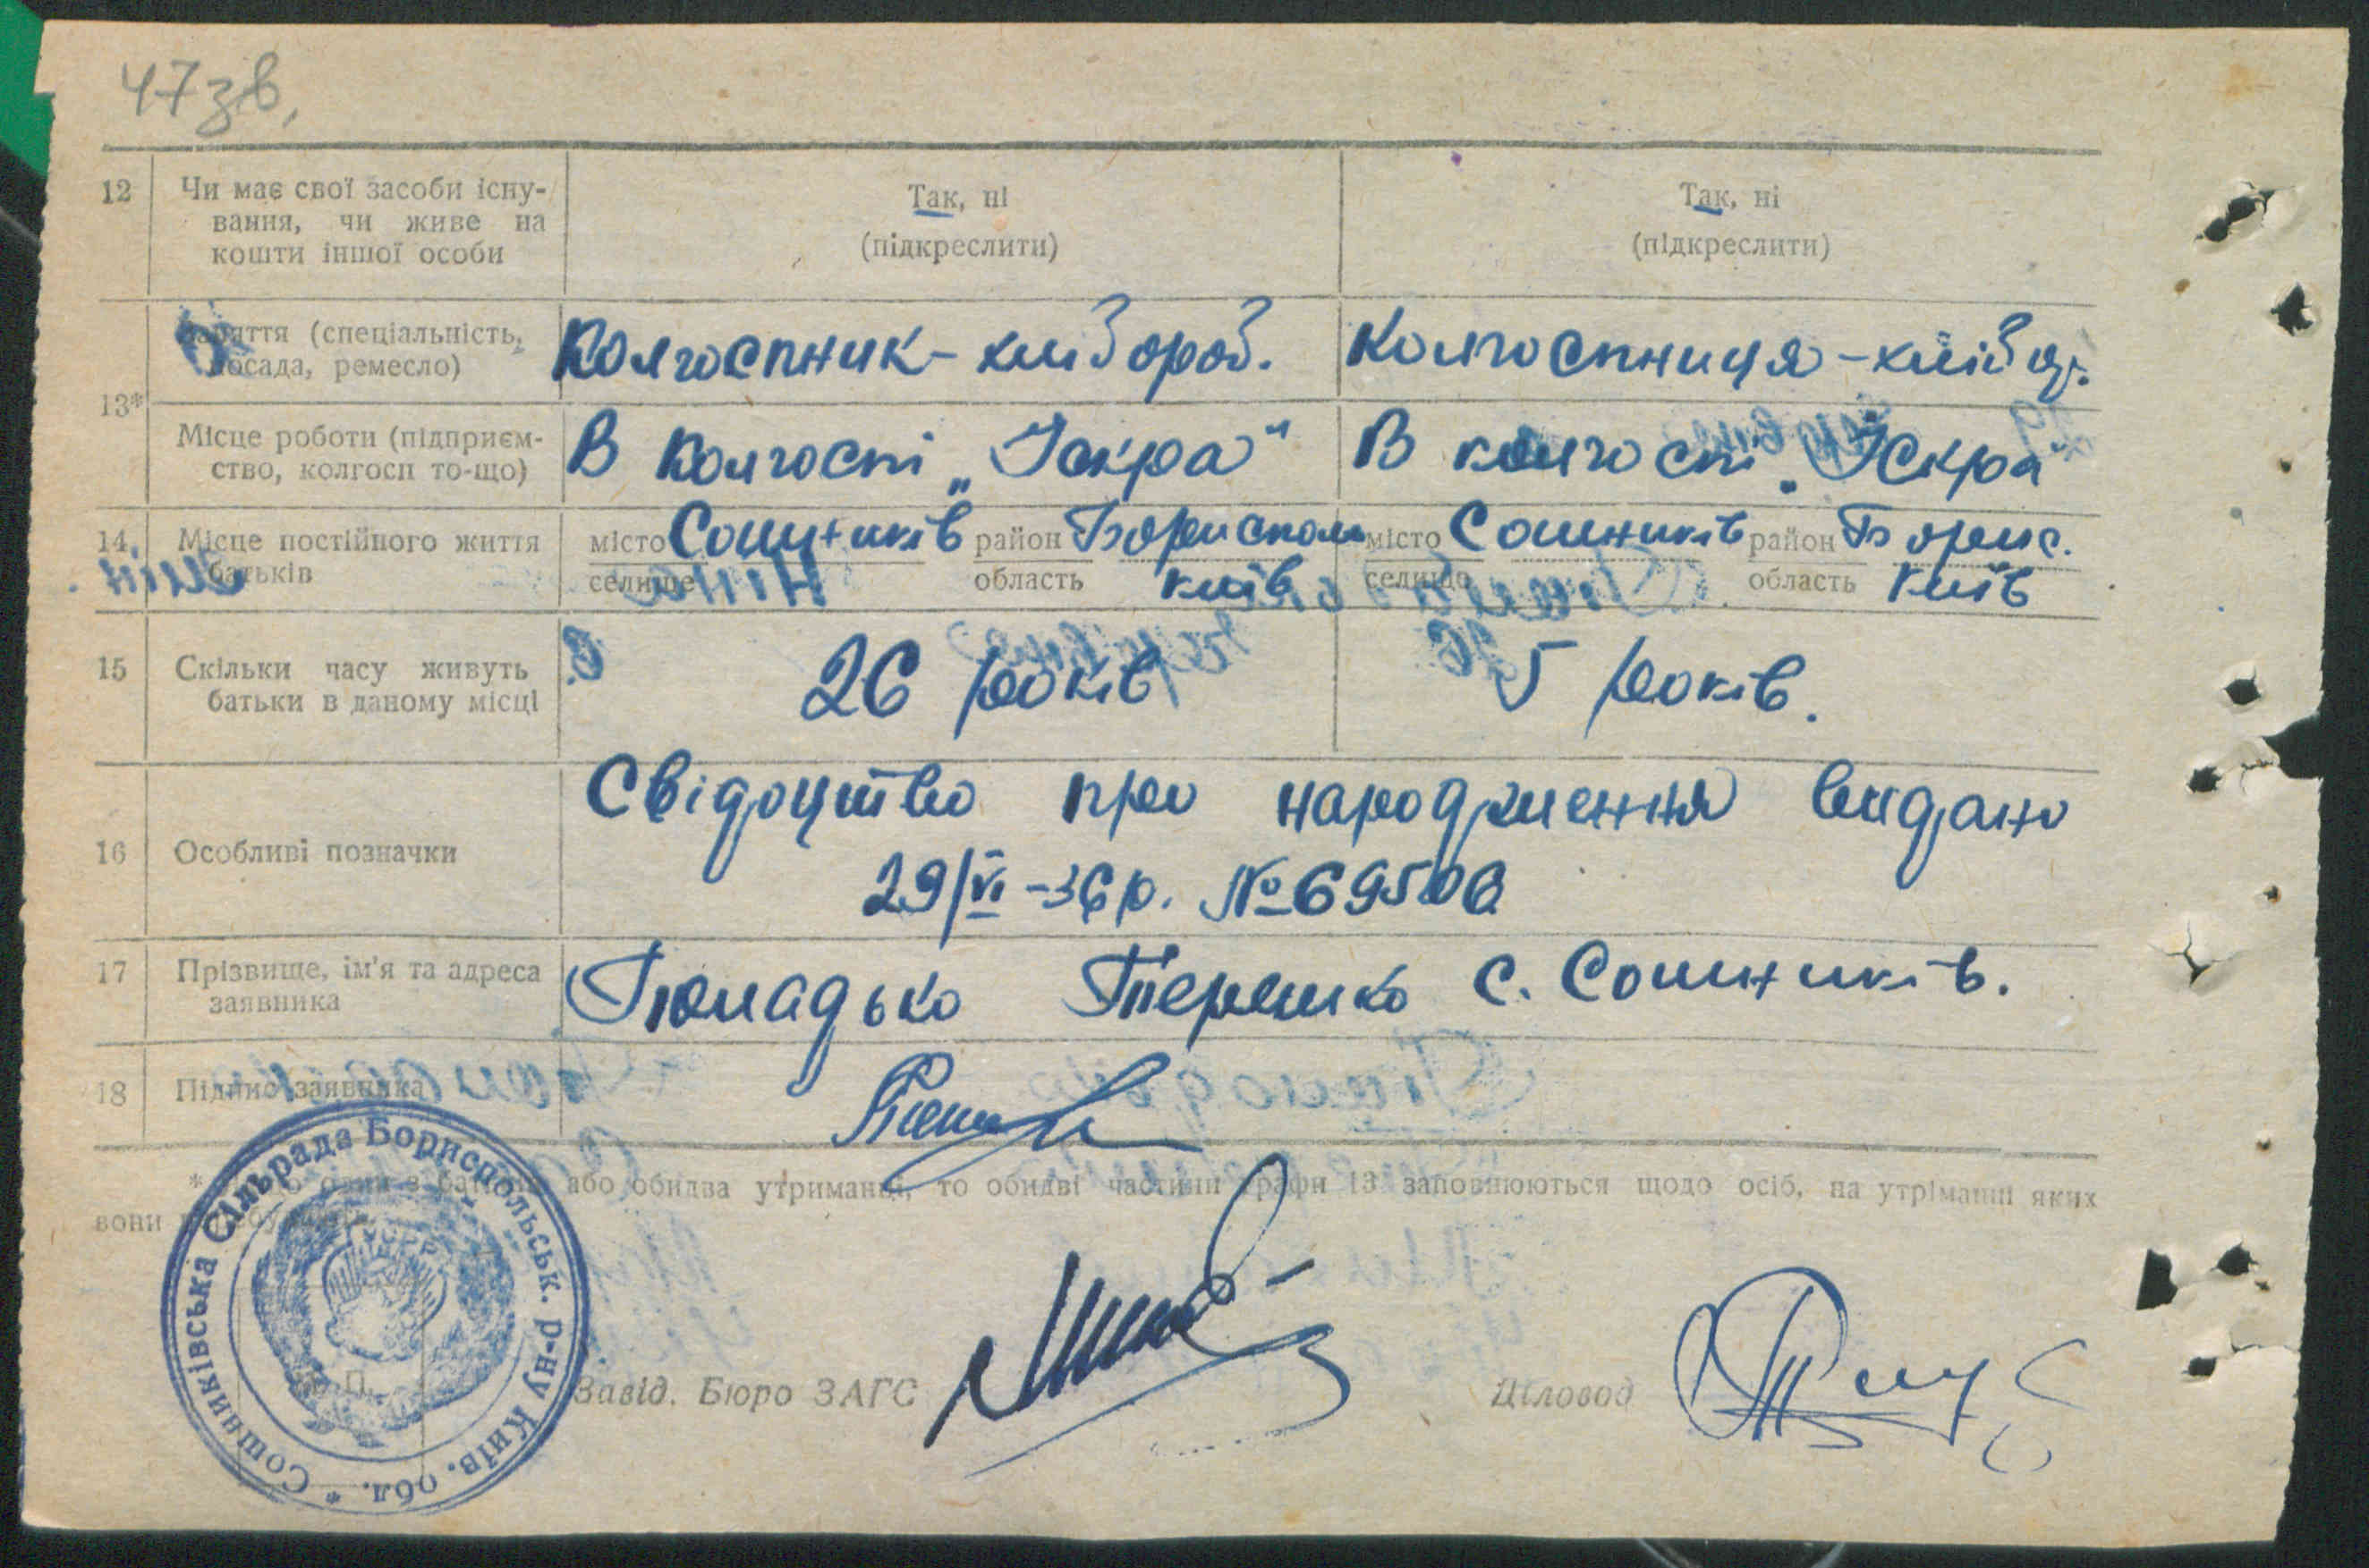 47зв.
12 Чи має свої засоби існу-
вання, чи живе на
кошти іншої особи
Так, ні
(підкреслити)
Так, ні
(підкреслити)
13*
Заняття (спеціальність,
посада, ремесло)
Колгоспник - хлібороб.
Колгоспниця - хліб
Місце роботи (підприєм-
ство, колгосп то-що)
В колгоспі „Іскра"
В колгоспі „Іскра"
14. Місце постійного життя
батьків
місто Сошників район Бориспол
селище область Київ
місто Сошників район Борис.
селище область Київ
15 Скільки часу живуть
батьки в даному місці
26 років
5 років.
16 Особливі позначки
Свідоцтво про народження видано
29/VI-36 р. №
17 Прізвище, ім'я та адреса
заявника
Терешко с. Сошників.
18 Підпис заявника
* один з або обидва утриманці, то обидві частини графи 13 заповнюються щодо осіб, на утріманні яких
вони
Сошниківська Сільрада Бориспольськ. р-ну Київ. обл. *
УСРР
М. П.
Завід. Бюро ЗАГС
Діловод